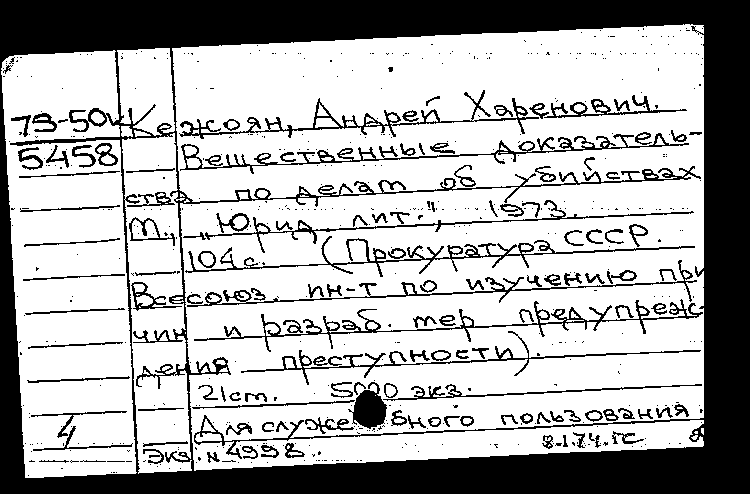 73-50к Кежоян, Андрей Харенович.
5458 Вещественные доказатель-
ства по делам об убийствах
М., „Юрид. лит.", 1973.
104 с. (Прокуратура СССР.
Всесоюз. ин-т по изучению при
чин и разраб. мер предупреж-
дения преступности).
21cm. 5000 экз.
4 Для служебного пользования.
Экз. № 4998. 8.1.74.гс